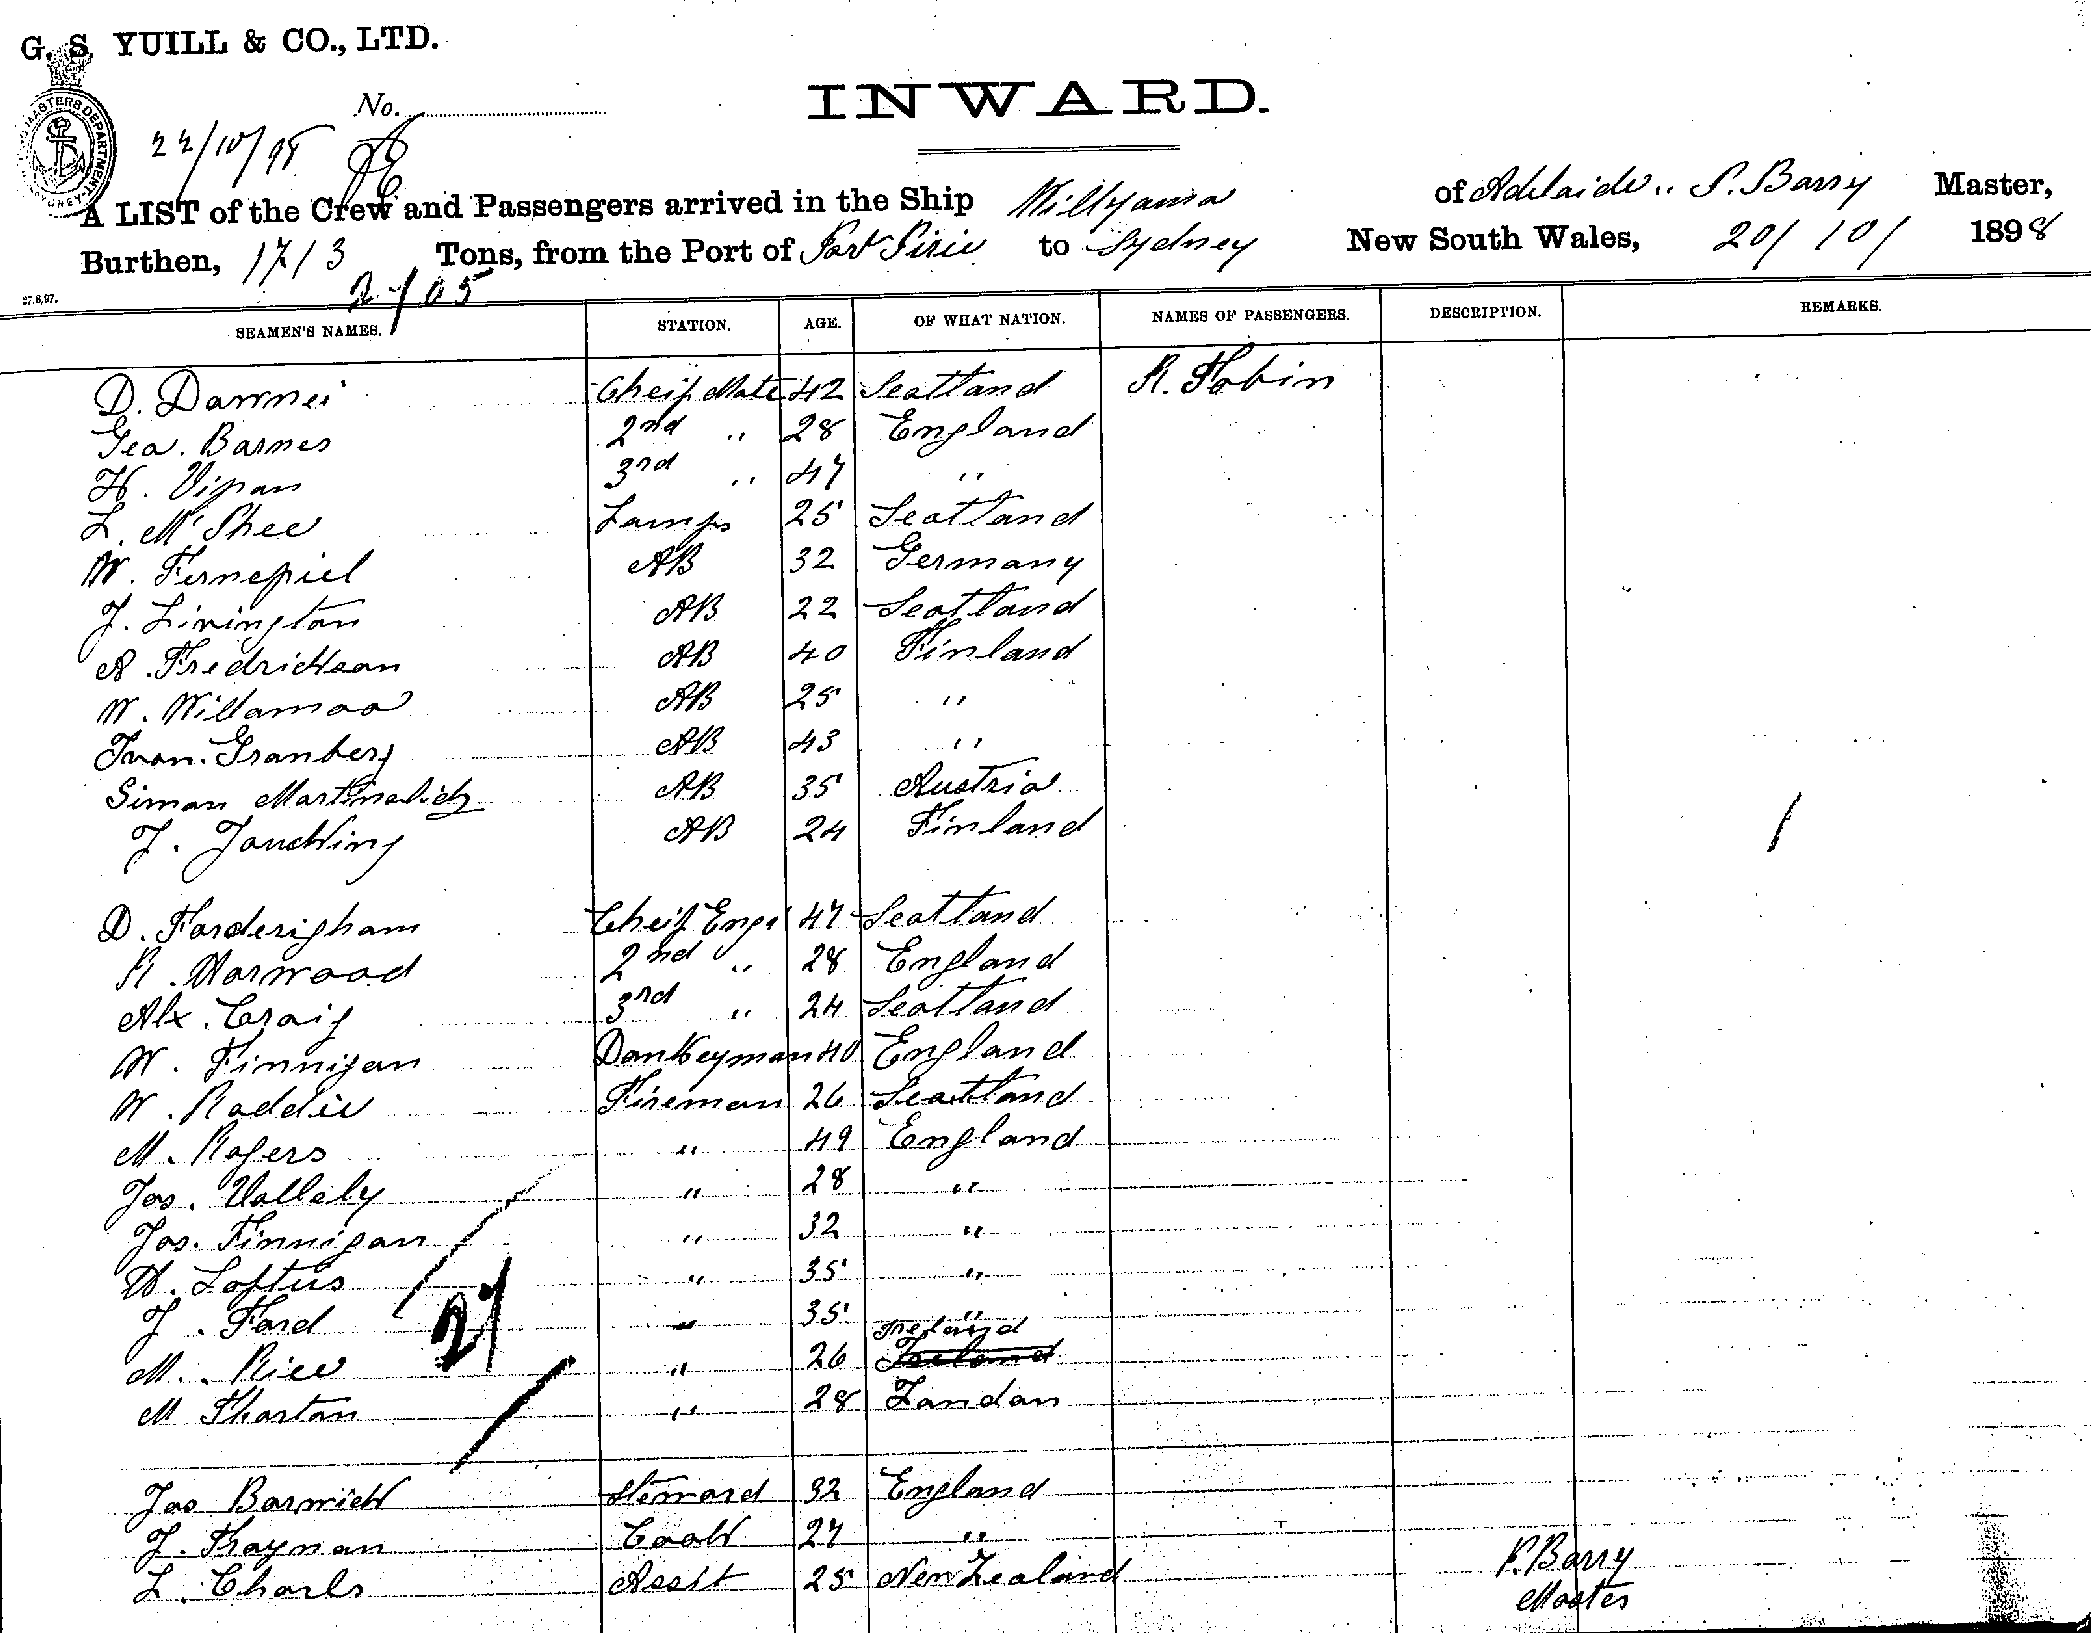 G. S. YUILL & CO., LTD.
No.
INWARD.
22/10/98
A LIST of the Crew and Passengers arrived in the Ship Willyama of Adelaide,, P. Barry Master,
Burthen, 1713 Tons, from the Port of Port Pirie to Sydney New South Wales, 20/10/ 1898
2705
27.8.97.
SEAMEN'S NAMES. STATION. AGE. OF WHAT NATION. NAMES OF PASSENGERS. DESCRIPTION. REMARKS.
D. Cheif Mate 42 Scotland R. Tobin
Geo. Barnes 2nd " 28 England
H. Vipan 3rd " 47 "
L. McPhee Lamps 25 Scotland
W. AB 32 Germany
J. Livington AB 22 Scotland
A. Fredrickson AB 40 Finland
W. Willamoo AB 25 "
Ivon. Granberg AB 43 "
Simon AB 35 Austria
J. AB 24 Finland
D. Forderigham Cheif Engr 47 Scotland
R. Norwood 2nd " 28 England
Alx. Craig 3rd " 24 Scotland
W. Finnigan Donkeyman 40 England
W. Roddie Fireman 26 Scotland
M. Rogers " 49 England
Jos. Vallely " 28 "
Jos. Finnigan " 32 "
W. Loftus " 35 "
J. Ford " 35 "
Ireland
M. Rice " 26
M Thortan " 28 London
27
Jos Barwick Steward 32 England
J. Trayman Cook 27 "
L. Charls Assit 25 New Zealand
P. Barry
Master